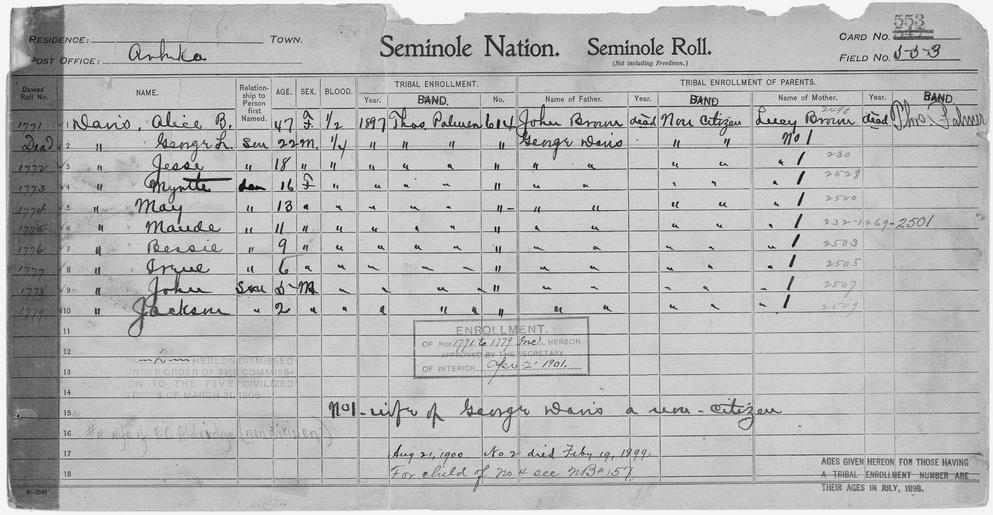 RESIDENCE: TOWN.
POST OFFICE: Arhka
Seminole Nation. Seminole Roll.
(Not including Freedmen.)
CARD NO. 553
547
FIELD NO. 553
Dawes' Roll No. NAME. Relationship to Person first Named. AGE. SEX. BLOOD. TRIBAL ENROLLMENT. TRIBAL ENROLLMENT OF PARENTS.
Year. BAND. No. Name of Father. Year. BAND Name of Mother. Year. BAND
1771 1 Davis, Alice B. 47 F 1/2 1897 Thos. Palmer 614 John Brown dead Non Citizen Lucy Brown dead Thos. Palmer
Dead 2 " George L. Son 22 M. 1/4 " " " " George Davis " " No 1
1772 3 " Jesse " 18 " " " " " " " " " " " 1 230
1773 4 " Myrtte dau 16 F " " " " " " " " " " 1 2528
1774 5 " May " 13 " " " " " " " " " " " 1 2500
1775 6 " Maude " 11 " " " " " " " " " " " 1 232-1269-2501
1776 7 " Bessie " 9 " " " " " " " " " " " 1 2503
1777 8 " Irene " 6 " " " " " " " " " " " 1 2505
1778 9 " John Son 5 M " " " " " " " " " " 1 2507
1779 10 " Jackson " 2 " " " " " " " " " " " 1 2509
11
12
13
14
15
16
17
18
ENROLLMENT.
OF NOS 1771 to 1779 Inc. HEREON
APPROVED BY THE SECRETARY
OF INTERIOR Apr. 2 1901.
No. 2 HEREON DISMISSED
UNDER ORDER OF THE COMMISSION
TO THE FIVE CIVILIZED
TRIBES OF MARCH 31, 1905.
No1 - wife of George Davis a non-citizen
#4 wife of E.C. Aldridge (non citizen)
Aug 21, 1900 No. 2 died Feby 19, 1899.
For child of No. 4 see NB# 157
AGES GIVEN HEREON FOR THOSE HAVING
A TRIBAL ENROLLMENT NUMBER ARE
THEIR AGES IN JULY, 1898.